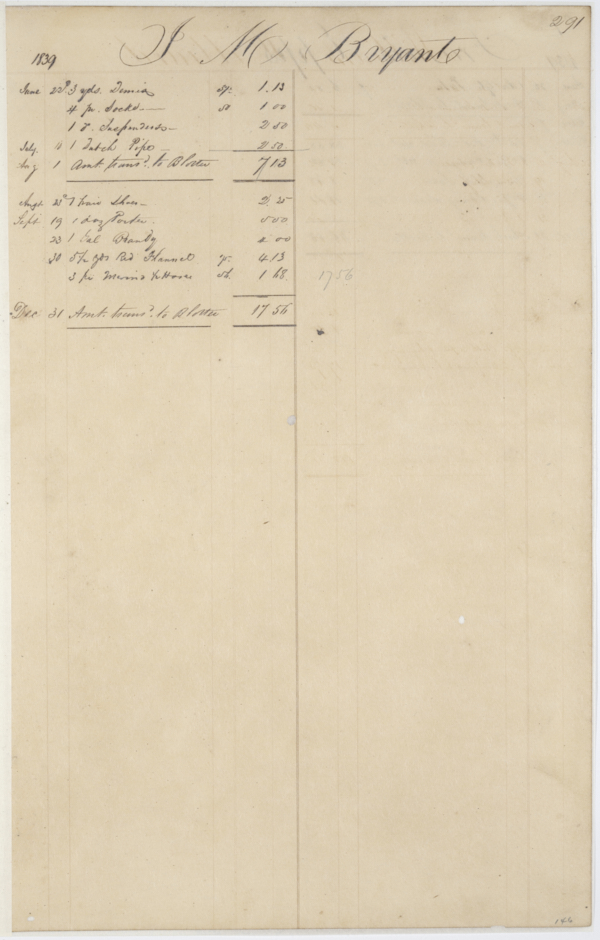 291
1839 J M Bryant
June 22d 3 yds. Denim 37½c 1.13
4 pr. Socks 50 1 00
1 " Suspenders 2 50
July 11 1 Dutch Pipe 2 50
Aug 1 Amt. transd. to Blotter 7 13
Augt. 1 Pair Shoes 2 25
Sept. 19 1 doz Porter 5 00
23 1 Gal Brandy 4 00
30 5½ yds Red Flannel 75 4 13
3 pr Merino ½ Hose 56 1 68
1756
Dec 31 Amt. transd. to Blotter 17 56
146